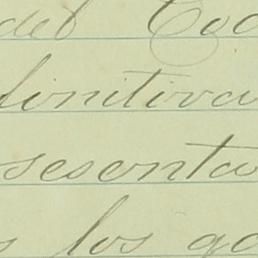 del Cod
finitiva
sesenta
s los ga